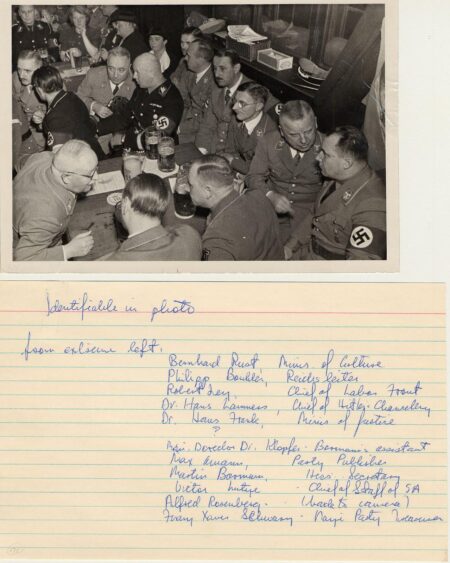 Identifiable in photo
from extreme left:
Bernhard Rust Minis of Culture
Philipp Reichsleiter
Robert Ley, Chief of Labor Front
Dr. Hans Lammers, Chief of Hitler Chancellery
Dr. Hans Frank, Minis of Justice
?
Director Dr. Klopfer - Bormann's assistant
Max Amann, Party Publisher
Martin Bormann, Hess' Secretary
Victor Lutze - Chief of Staff of SA
Alfred Rosenberg - (back to camera)
Franz Xaver Schwarz - Nazi Party Treasurer